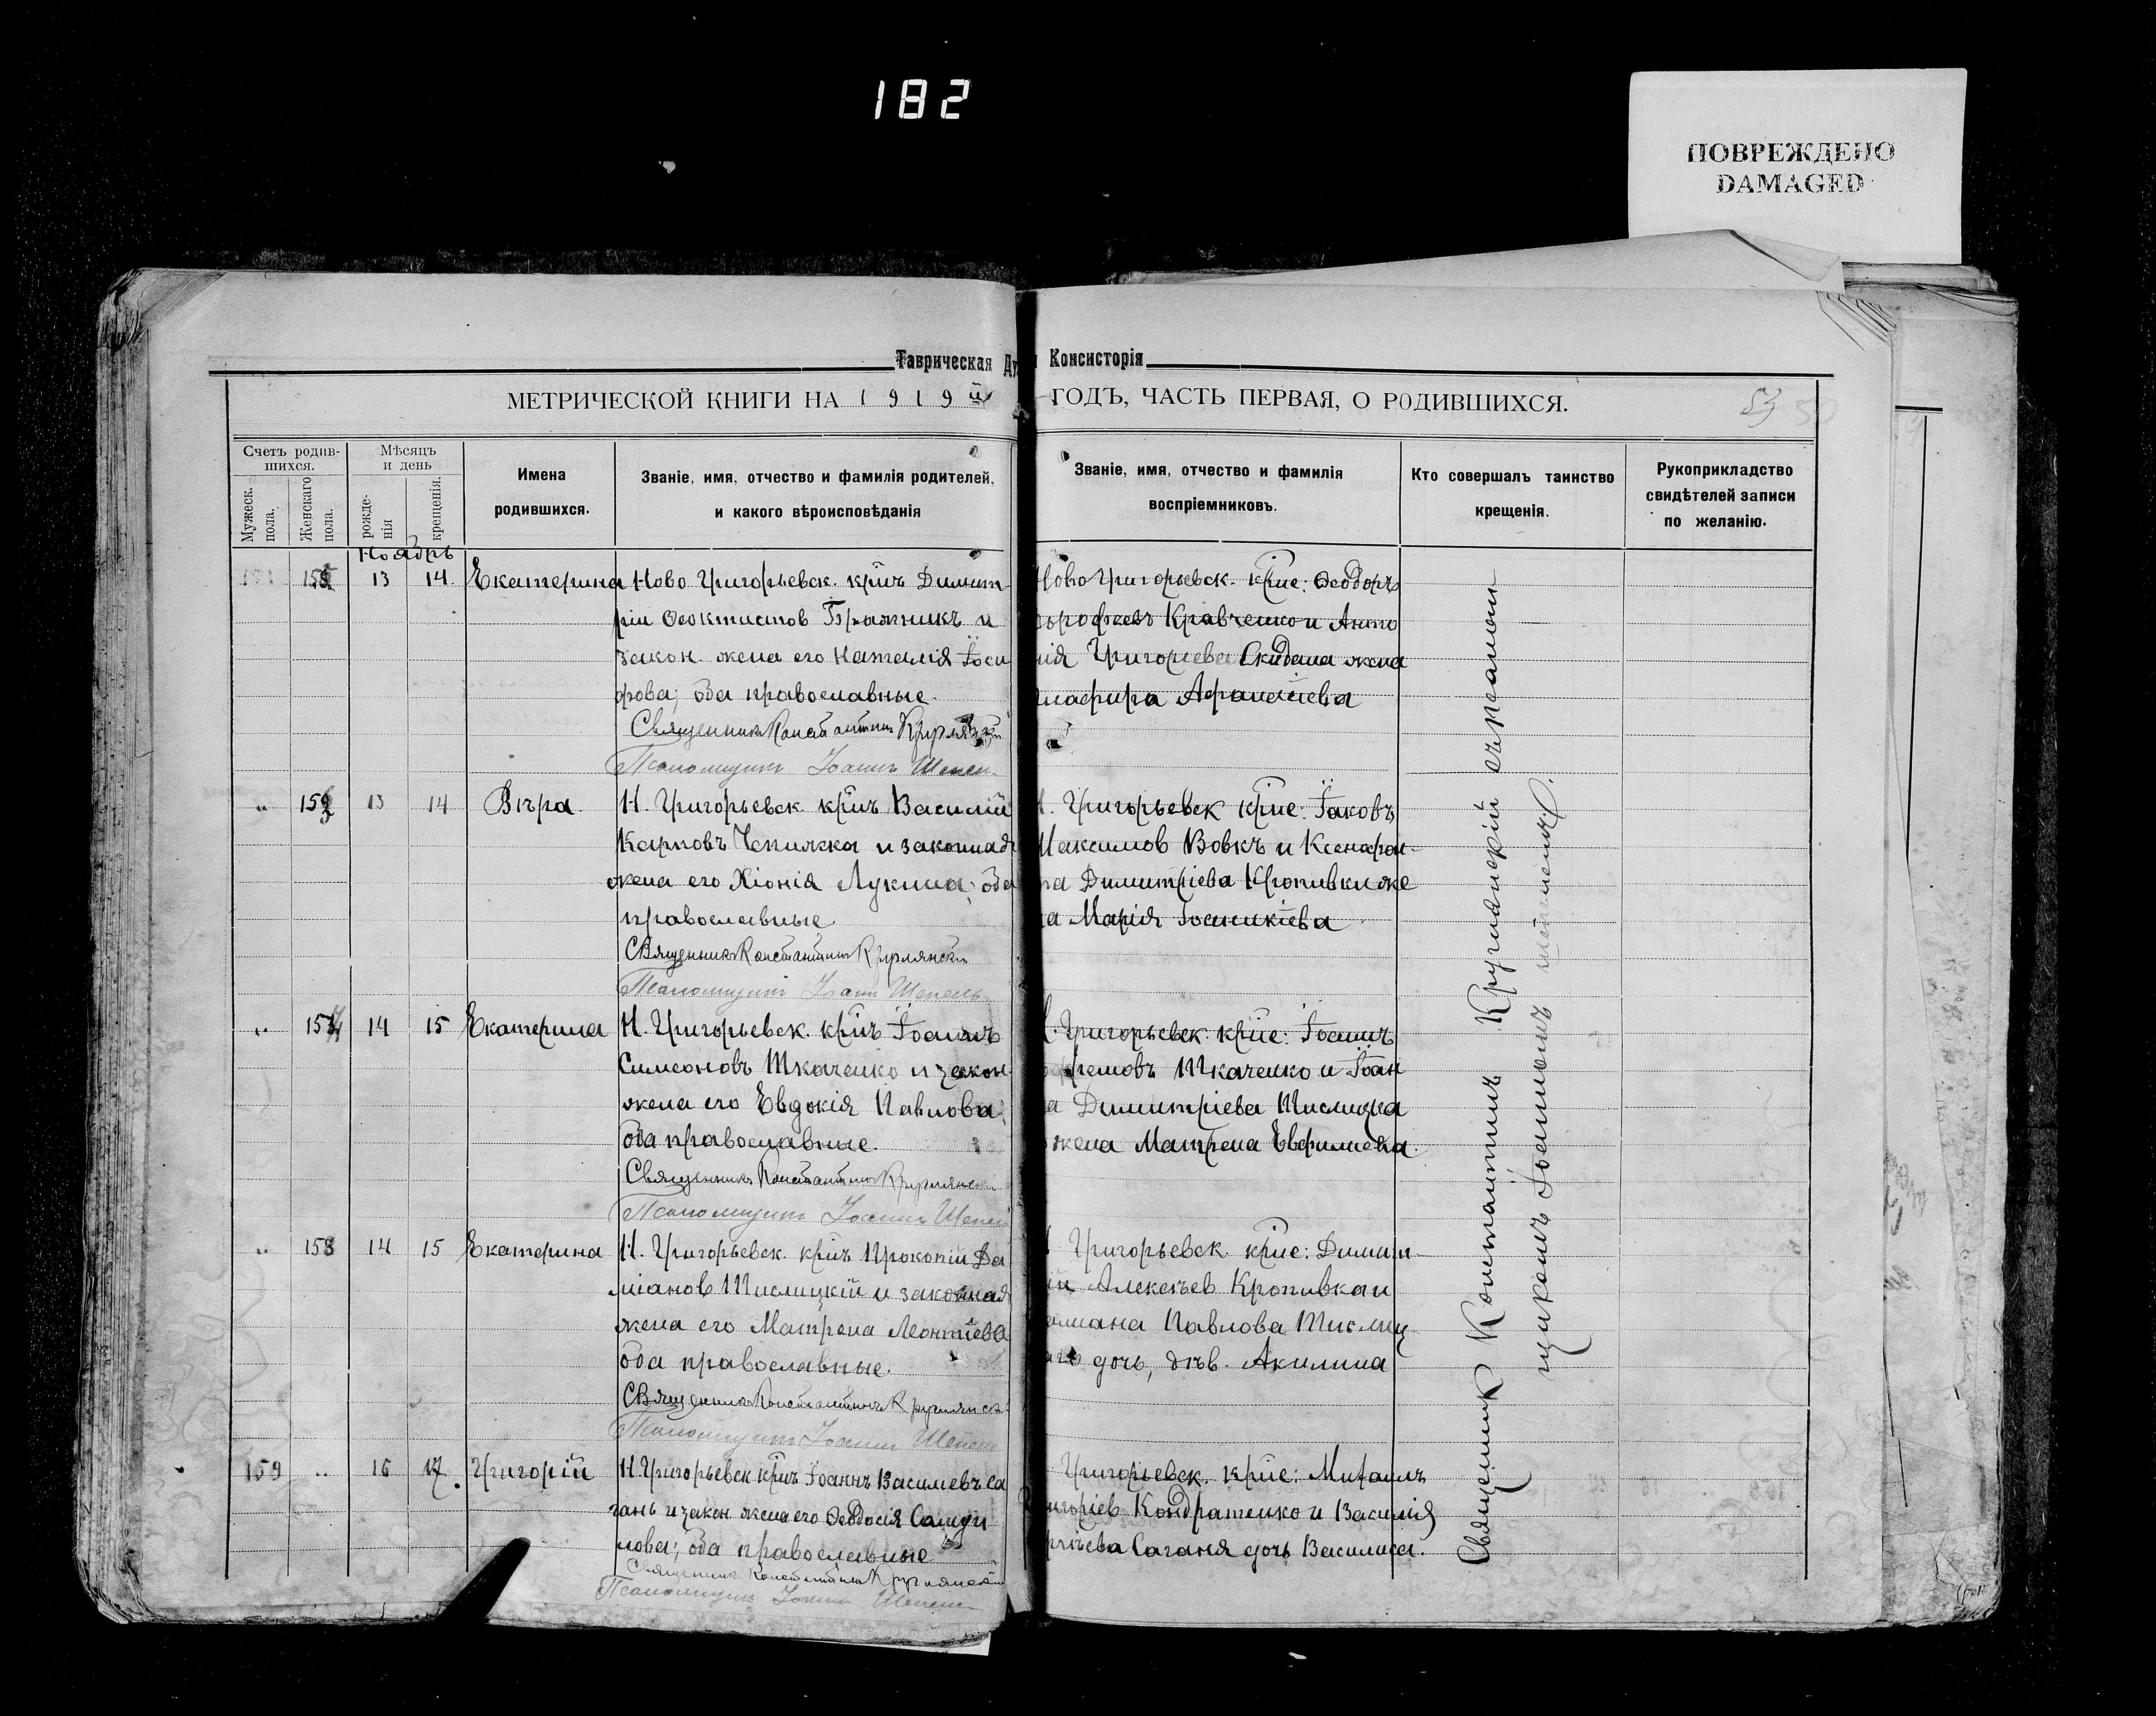 182
ПОВРЕЖДЕНО
DAMAGED
Таврическая Ду Консисторія
МЕТРИЧЕСКОЙ КНИГИ НА 1919й ГОДЪ, ЧАСТЬ ПЕРВАЯ, О РОДИВШИХСЯ.
Счетъ родив-
шихся.
Мужеск. пола.
Женскаго пола.
Мѣсяцъ
и день
рожде-
нія
крещенія.
Имена
родившихся.
Званіе, имя, отчество и фамилія родителей,
и какого вѣроисповѣданія
Званіе, имя, отчество и фамилія
воспріемниковъ.
Кто совершалъ таинство
крещенія.
Рукоприкладство
свидѣтелей записи
по желанію.
Ноябрь
13 14 Екатерина Ново Григорьевск. крнъ Димит-
рій Ѳеоктистов Бражникъ и
закон. жена его Наталія Іоси
фова; оба православные.
Священникъ Константинъ Круглянскій
Псаломщикъ Іоаннъ Шепель
Ново Григорьевск. кр-не: Ѳеодоръ
Дорофеевъ Кравченко и Анто
нія Григоріева Скидана жена
Афанасіева
" 13 14 Вѣра Н. Григорьевск. крнъ Василій
Карповъ и законная
жена его Хіонія Лукина; оба
православные
Священникъ Константинъ Круглянскій
Псаломщикъ Іоаннъ Шепель
Н. Григорьевск. кр-не: Іаковъ
Максимов Вовкъ и Ксенофон
Димитріева Кропивки же
на Марія Іоанникіева
" 14 15 Екатерина Н. Григорьевск. крнъ Іоаннъ
Симеоновъ Ткаченко и закон.
жена его Евдокія Павлова;
оба православные.
Священникъ Константинъ Круглянскій
Псаломщикъ Іоаннъ Шепель
Григорьевск. кр-не: Іоаннъ
Ткаченко и Іоан
на Димитріева Тислицка
жена Матрена Евфиміева.
" 158 14 15 Екатерина Н. Григорьевск. крнъ Прокопій Да
міанов Тислицкій и законная
жена его Матрена Леонтіева
оба православные.
Священникъ Константинъ Круглянск
Псаломщикъ Іоаннъ Шепель
Григорьевск. кр-не: Димит
рій Алексѣев Кропивка и
Павлова Тислиц
дочь, дѣв. Акилина
159 " 16 17. Григорій Н. Григорьевск. крнъ Іоаннъ Василіевъ Са
гань и закон. жена его Ѳеодосія Самуи
лова; оба православные
Священникъ Константинъ Круглянскій
Псаломщикъ Іоаннъ Шепель
Григорьевск. кр-не: Михаилъ
Григоріев Кондратенко и Василія
Саганя дочь Василиса.
Священникъ Константинъ Круглянскій съ псаломщикомъ Іоанномъ